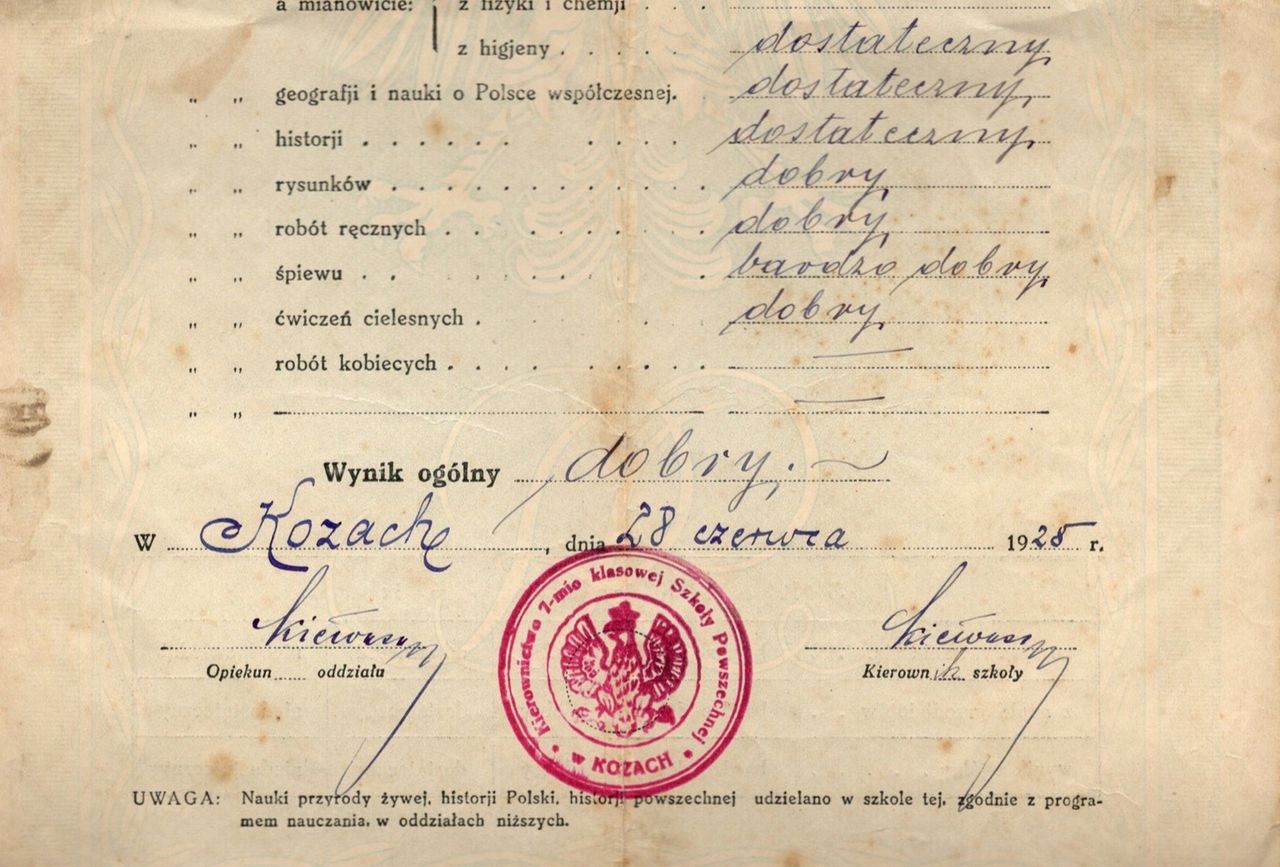 a mianowicie: z fizyki i chemji . . .
z higjeny . . . . . dostateczny
„ „ geografji i nauki o Polsce współczesnej. dostateczny
„ „ historji . . . . . . . . . . dostateczny
„ „ rysunków . . . . . . . . . . . . dobry
„ „ robót ręcznych . . . . . . . . . . dobry
„ „ śpiewu . . . bardzo dobry
„ „ ćwiczeń cielesnych . . . dobry
„ „ robót kobiecych . . . . . . . . . —
„ „ —
Wynik ogólny dobry. ~
W Kozach, dnia 28 czerwca 1925 r.
Opiekun oddziału
Kierownik szkoły
Kierownictwo 7-mio klasowej Szkoły Powszechnej
* w KOZACH *
UWAGA: Nauki przyrody żywej, historji Polski, historji powszechnej udzielano w szkole tej, zgodnie z progra-
mem nauczania, w oddziałach niższych.